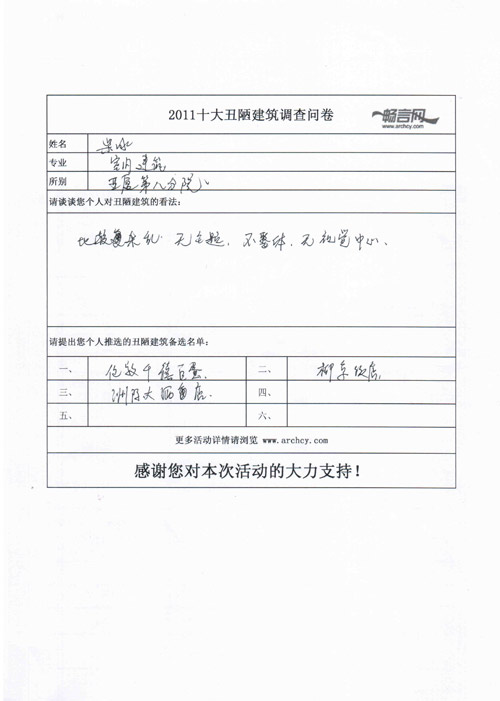 2011十大丑陋建筑调查问卷
畅言网
www.archcy.com
姓名 吴冰
专业 室内建筑
所别 亚厦第八分院
请谈谈您个人对丑陋建筑的看法:
比较杂乱 无主题, 不整体, 无视觉中心、
请提出您个人推选的丑陋建筑备选名单:
一、 伦敦千禧巨蛋 二、 柳京饭店
三、 洲际大酒店 四、
五、 六、
更多活动详情请浏览 www.archcy.com
感谢您对本次活动的大力支持!